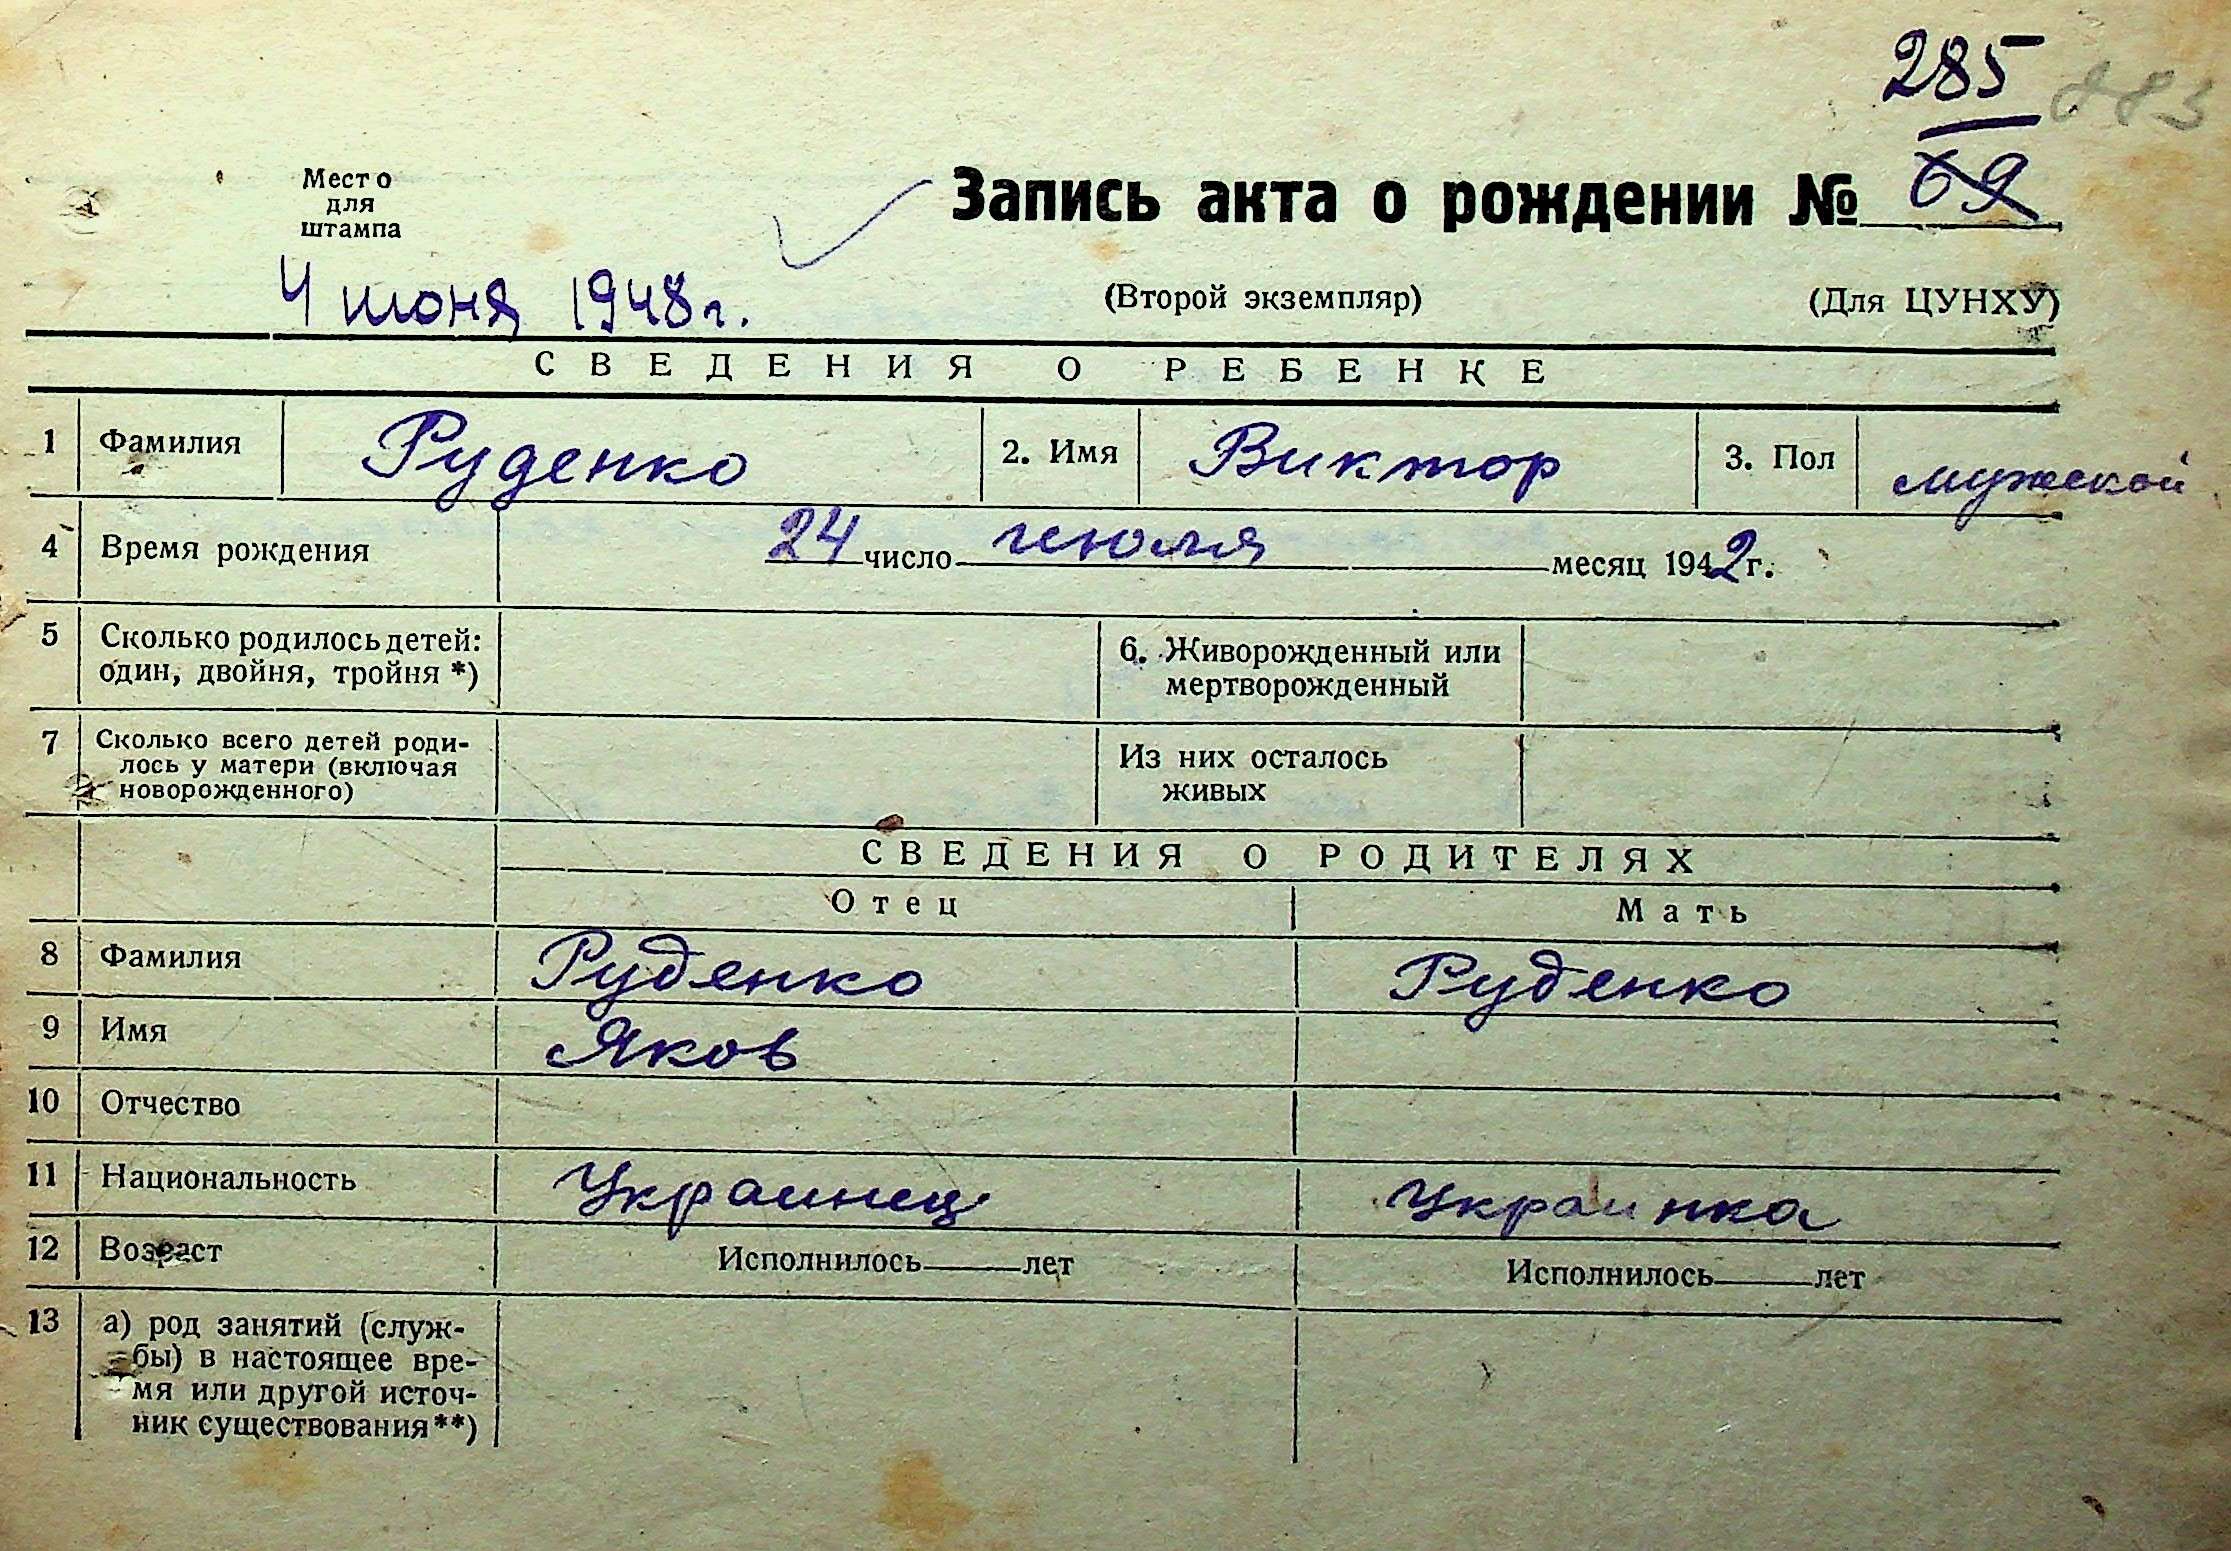 285
883
Место
для
штампа
Запись акта о рождении № 69
4 июня 1948 г.
(Второй экземпляр) (Для ЦУНХУ)
СВЕДЕНИЯ О РЕБЕНКЕ
1 Фамилия Руденко 2. Имя Виктор 3. Пол мужской
4 Время рождения 24 число июля месяц 1942 г.
5 Сколько родилось детей:
один, двойня, тройня *)
6. Живорожденный или
мертворожденный
7 Сколько всего детей роди-
лось у матери (включая
новорожденного)
Из них осталось
живых
СВЕДЕНИЯ О РОДИТЕЛЯХ
Отец Мать
8 Фамилия Руденко Руденко
9 Имя Яков
10 Отчество
11 Национальность Украинец Украинка
12 Возраст Исполнилось лет Исполнилось лет
13 а) род занятий (служ-
бы) в настоящее вре-
мя или другой источ-
ник существования**)